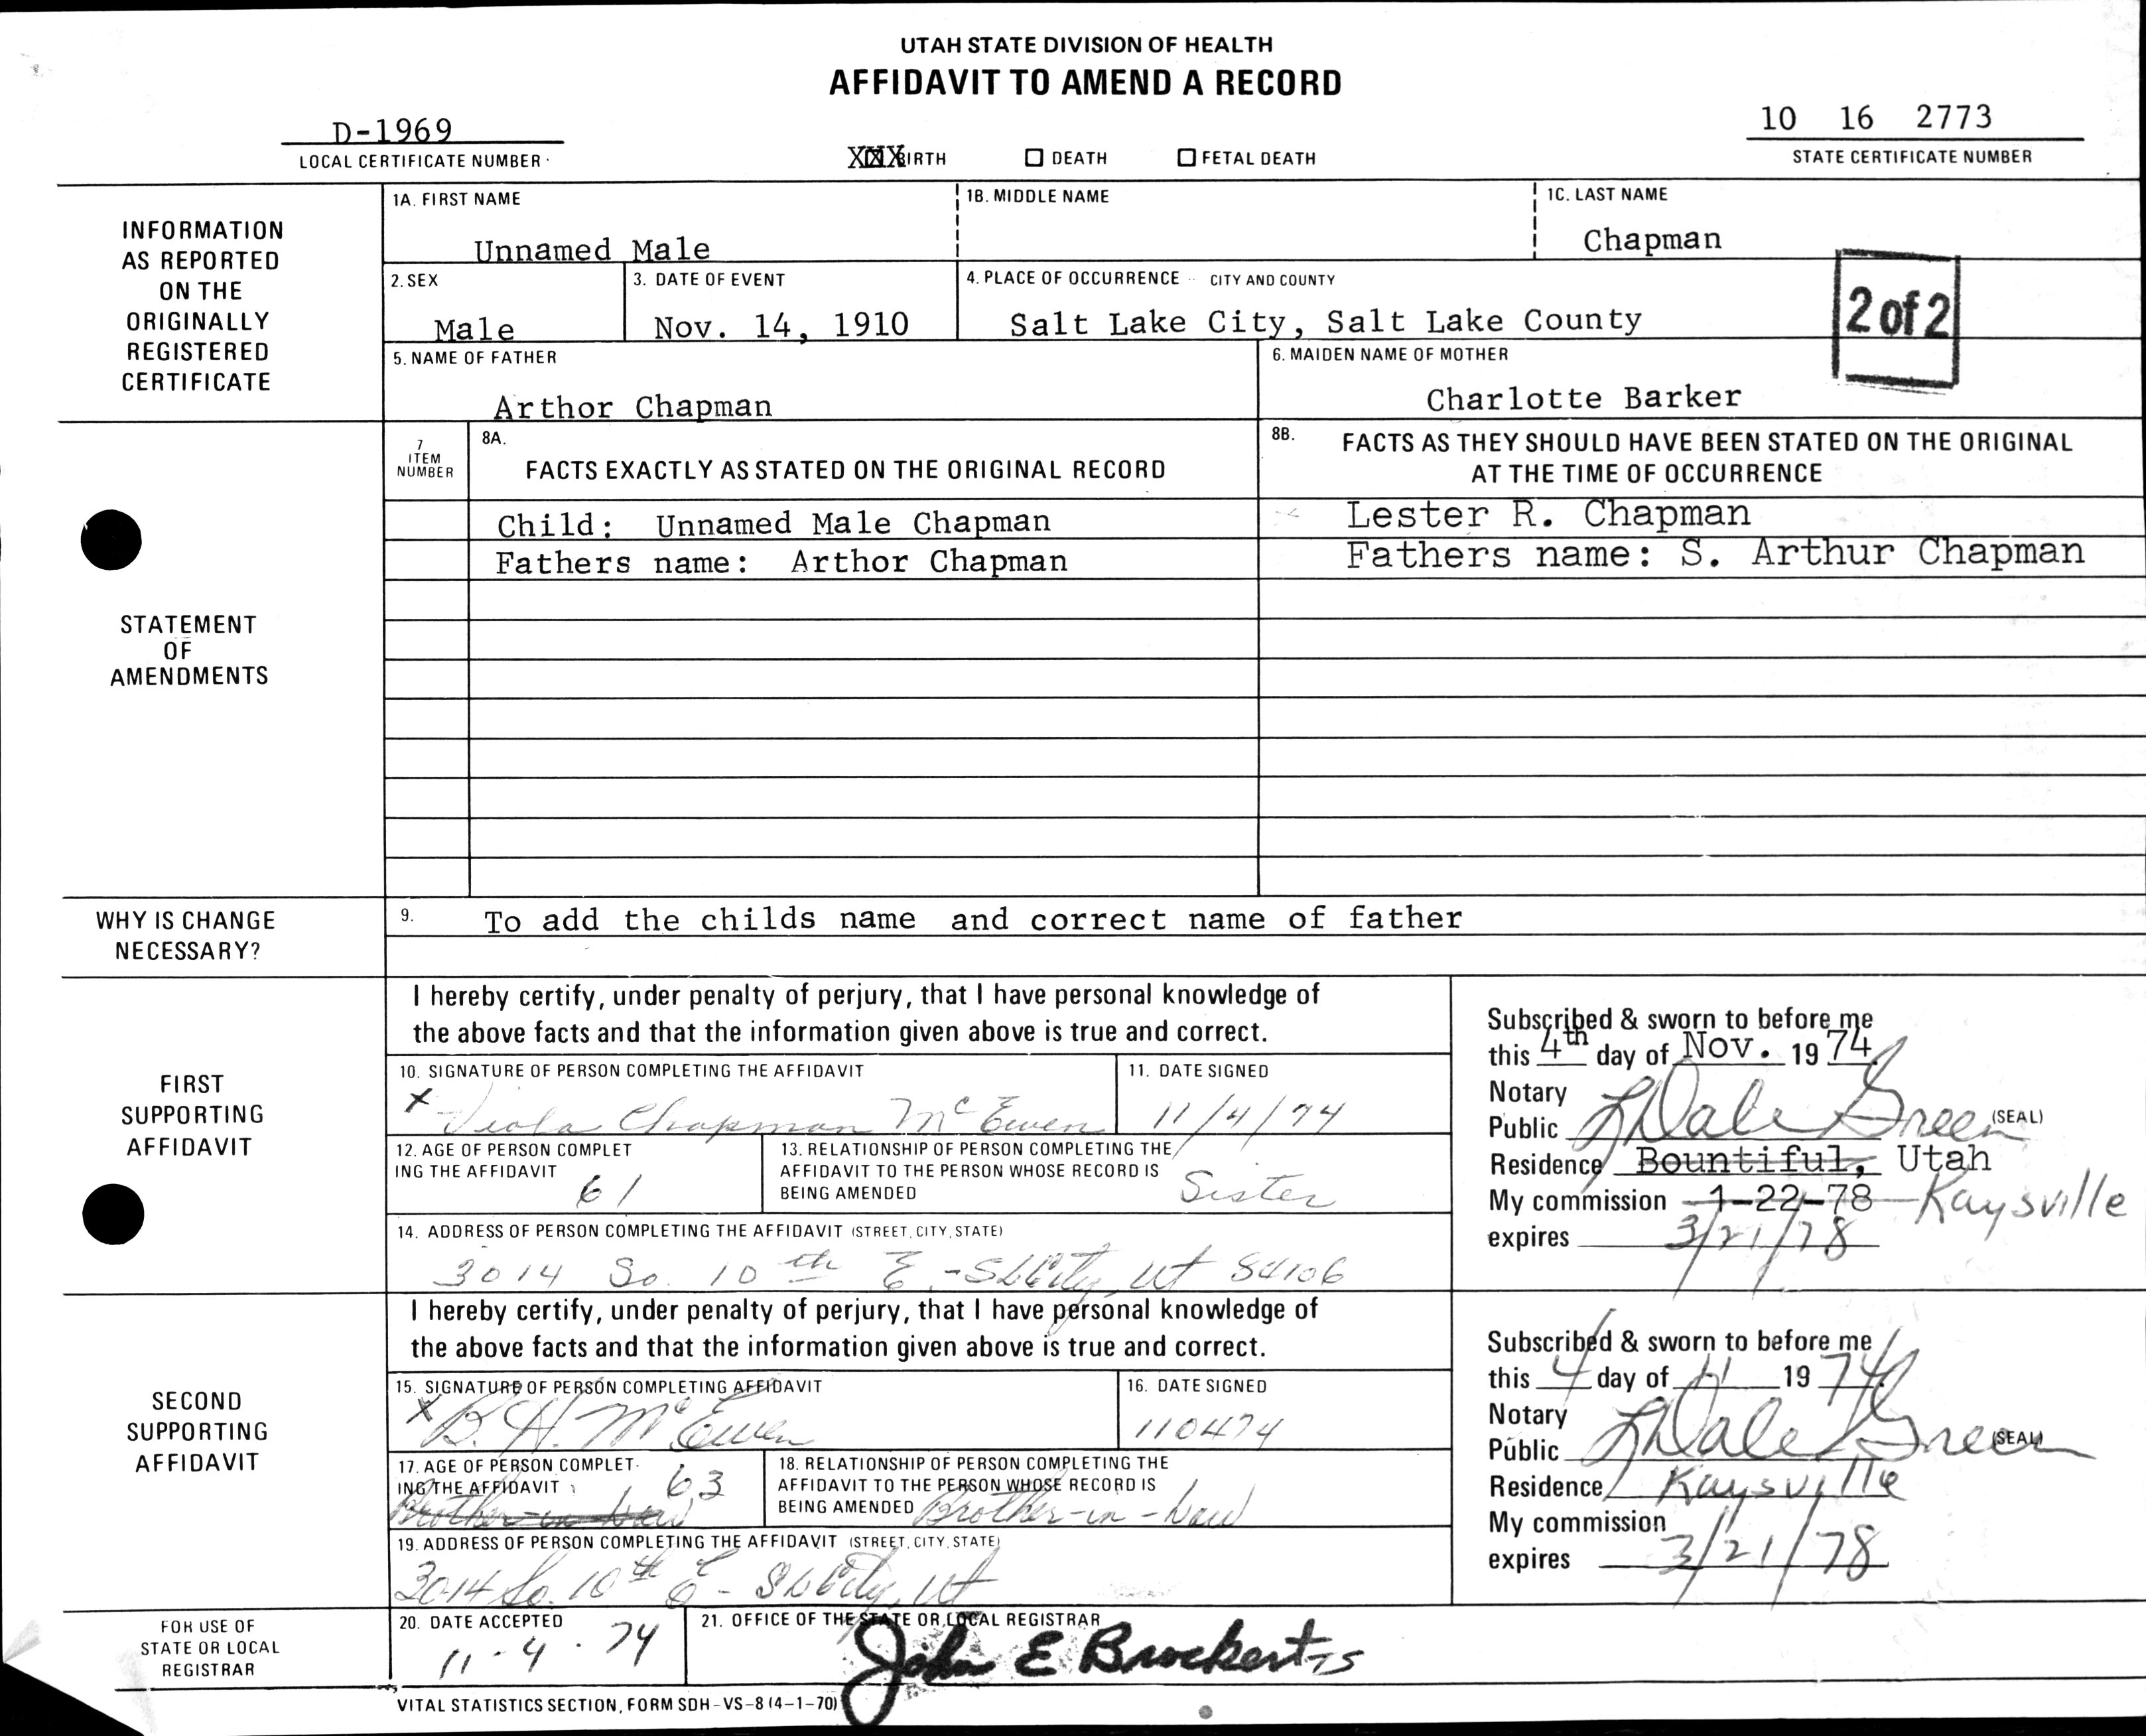 UTAH STATE DIVISION OF HEALTH
AFFIDAVIT TO AMEND A RECORD
D-1969
LOCAL CERTIFICATE NUMBER
XXX BIRTH ☐ DEATH ☐ FETAL DEATH
10 16 2773
STATE CERTIFICATE NUMBER
INFORMATION
AS REPORTED
ON THE
ORIGINALLY
REGISTERED
CERTIFICATE
1A. FIRST NAME
Unnamed Male
1B. MIDDLE NAME
1C. LAST NAME
Chapman
2. SEX
Male
3. DATE OF EVENT
Nov. 14, 1910
4. PLACE OF OCCURRENCE -- CITY AND COUNTY
Salt Lake City, Salt Lake County
2 of 2
5. NAME OF FATHER
Arthor Chapman
6. MAIDEN NAME OF MOTHER
Charlotte Barker
STATEMENT
OF
AMENDMENTS
7
ITEM
NUMBER
8A.
FACTS EXACTLY AS STATED ON THE ORIGINAL RECORD
8B. FACTS AS THEY SHOULD HAVE BEEN STATED ON THE ORIGINAL
AT THE TIME OF OCCURRENCE
Child: Unnamed Male Chapman
Lester R. Chapman
Fathers name: Arthor Chapman
Fathers name: S. Arthur Chapman
WHY IS CHANGE
NECESSARY?
9. To add the childs name and correct name of father
FIRST
SUPPORTING
AFFIDAVIT
I hereby certify, under penalty of perjury, that I have personal knowledge of
the above facts and that the information given above is true and correct.
10. SIGNATURE OF PERSON COMPLETING THE AFFIDAVIT
x Viola Chapman McEwen
11. DATE SIGNED
11/4/74
12. AGE OF PERSON COMPLET
ING THE AFFIDAVIT
61
13. RELATIONSHIP OF PERSON COMPLETING THE
AFFIDAVIT TO THE PERSON WHOSE RECORD IS
BEING AMENDED
Sister
14. ADDRESS OF PERSON COMPLETING THE AFFIDAVIT (STREET, CITY, STATE)
3014 So. 10th E.-SLCity, Ut 84106
Subscribed & sworn to before me
this 4th day of Nov. 1974
Notary
Public L Dale Green (SEAL)
Residence Bountiful, Utah
My commission 1-22-78 Kaysville
expires 3/21/78
SECOND
SUPPORTING
AFFIDAVIT
I hereby certify, under penalty of perjury, that I have personal knowledge of
the above facts and that the information given above is true and correct.
15. SIGNATURE OF PERSON COMPLETING AFFIDAVIT
x B. H. McEwen
16. DATE SIGNED
110474
17. AGE OF PERSON COMPLET-
ING THE AFFIDAVIT
63
Brother-in-law
18. RELATIONSHIP OF PERSON COMPLETING THE
AFFIDAVIT TO THE PERSON WHOSE RECORD IS
BEING AMENDED Brother-in-Law
19. ADDRESS OF PERSON COMPLETING THE AFFIDAVIT (STREET, CITY, STATE)
3014 So. 10th E - SLCity, Ut
Subscribed & sworn to before me
this 4 day of 11 1974
Notary
Public L Dale Green (SEAL)
Residence Kaysville
My commission
expires 3/21/78
FOR USE OF
STATE OR LOCAL
REGISTRAR
20. DATE ACCEPTED
11-4-74
21. OFFICE OF THE STATE OR LOCAL REGISTRAR
John E Brockert TS
VITAL STATISTICS SECTION, FORM SDH-VS-8 (4-1-70)